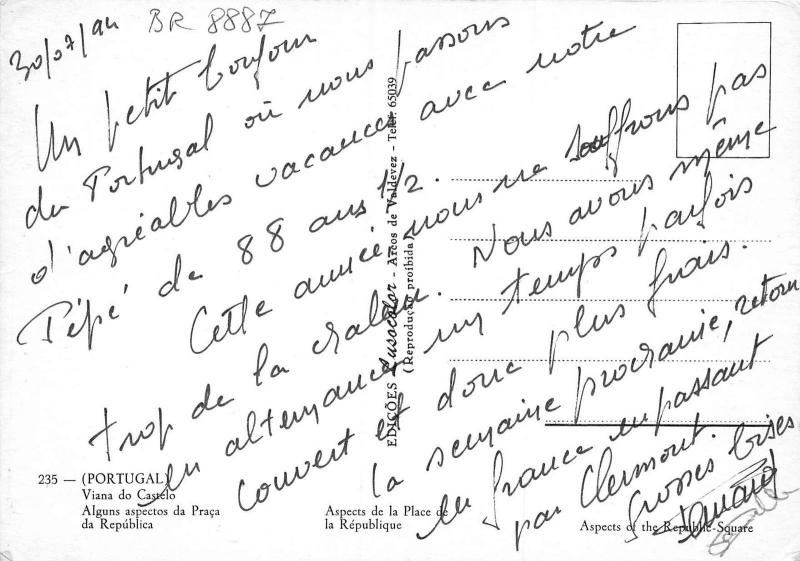 30/07/94 BR 8887
Un petit bonjour
du Portugal où nous passons
d'agréables vacances avec notre
Pépé de 88 ans 1/2.
Cette année nous ne souffrons pas
trop de la chaleur. Nous avons même
en alternance un temps parfois
couvert et donc plus frais.
la semaine prochaine, retour
en France en passant
par Clermont.
Grosses bises
EDIÇÕES Lusocolor - Arcos de Valdevez - Telef. 65039
(Reprodução proibida)
235 — (PORTUGAL)
Viana do Castelo
Alguns aspectos da Praça
da República
Aspects de la Place de
la République
Aspects of the Republic-Square